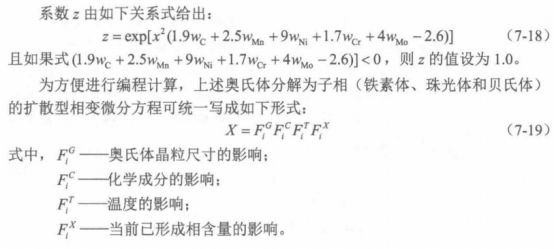 系数 z 由如下关系式给出：
z = exp[x²(1.9w_C + 2.5w_Mn + 9w_Ni + 1.7w_Cr + 4w_Mo − 2.6)] (7-18)
且如果式(1.9w_C + 2.5w_Mn + 9w_Ni + 1.7w_Cr + 4w_Mo − 2.6)] < 0，则 z 的值设为 1.0。
为方便进行编程计算，上述奥氏体分解为子相（铁素体、珠光体和贝氏体）
的扩散型相变微分方程可统一写成如下形式：
X = F_i^G F_i^C F_i^T F_i^X (7-19)
式中，F_i^G ——奥氏体晶粒尺寸的影响；
F_i^C ——化学成分的影响；
F_i^T ——温度的影响；
F_i^X ——当前已形成相含量的影响。